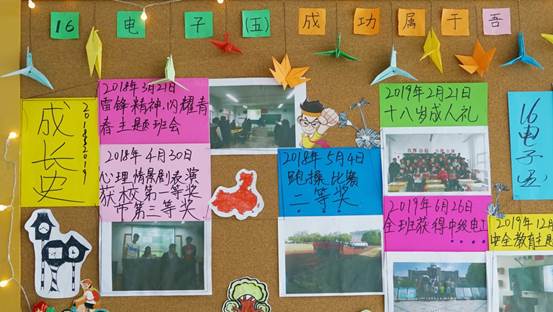 16 电 子 (五) 成 功 属 于 吾
成长史
2018—2019
2018年3月21日
雷锋精神·闪耀青
春主题班会
2018年4月30日
心理情景剧表演
获校第一等奖
市第三等奖
2018年5月4日
跑操比赛
二等奖
2019年2月21日
十八岁成人礼
2019年6月26日
全班获得中级电工
....
2019年12月
安全教育主题
16
电
子
五